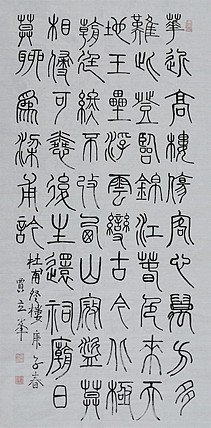 華近高樓傷客心萬方多
難此登臨錦江春色來天
地玉壘浮雲變古今北極
朝廷終不改西山寇盜莫
相侵可憐後主還祠廟日
莫聊為梁甫吟
杜甫登樓庚子春
賈立